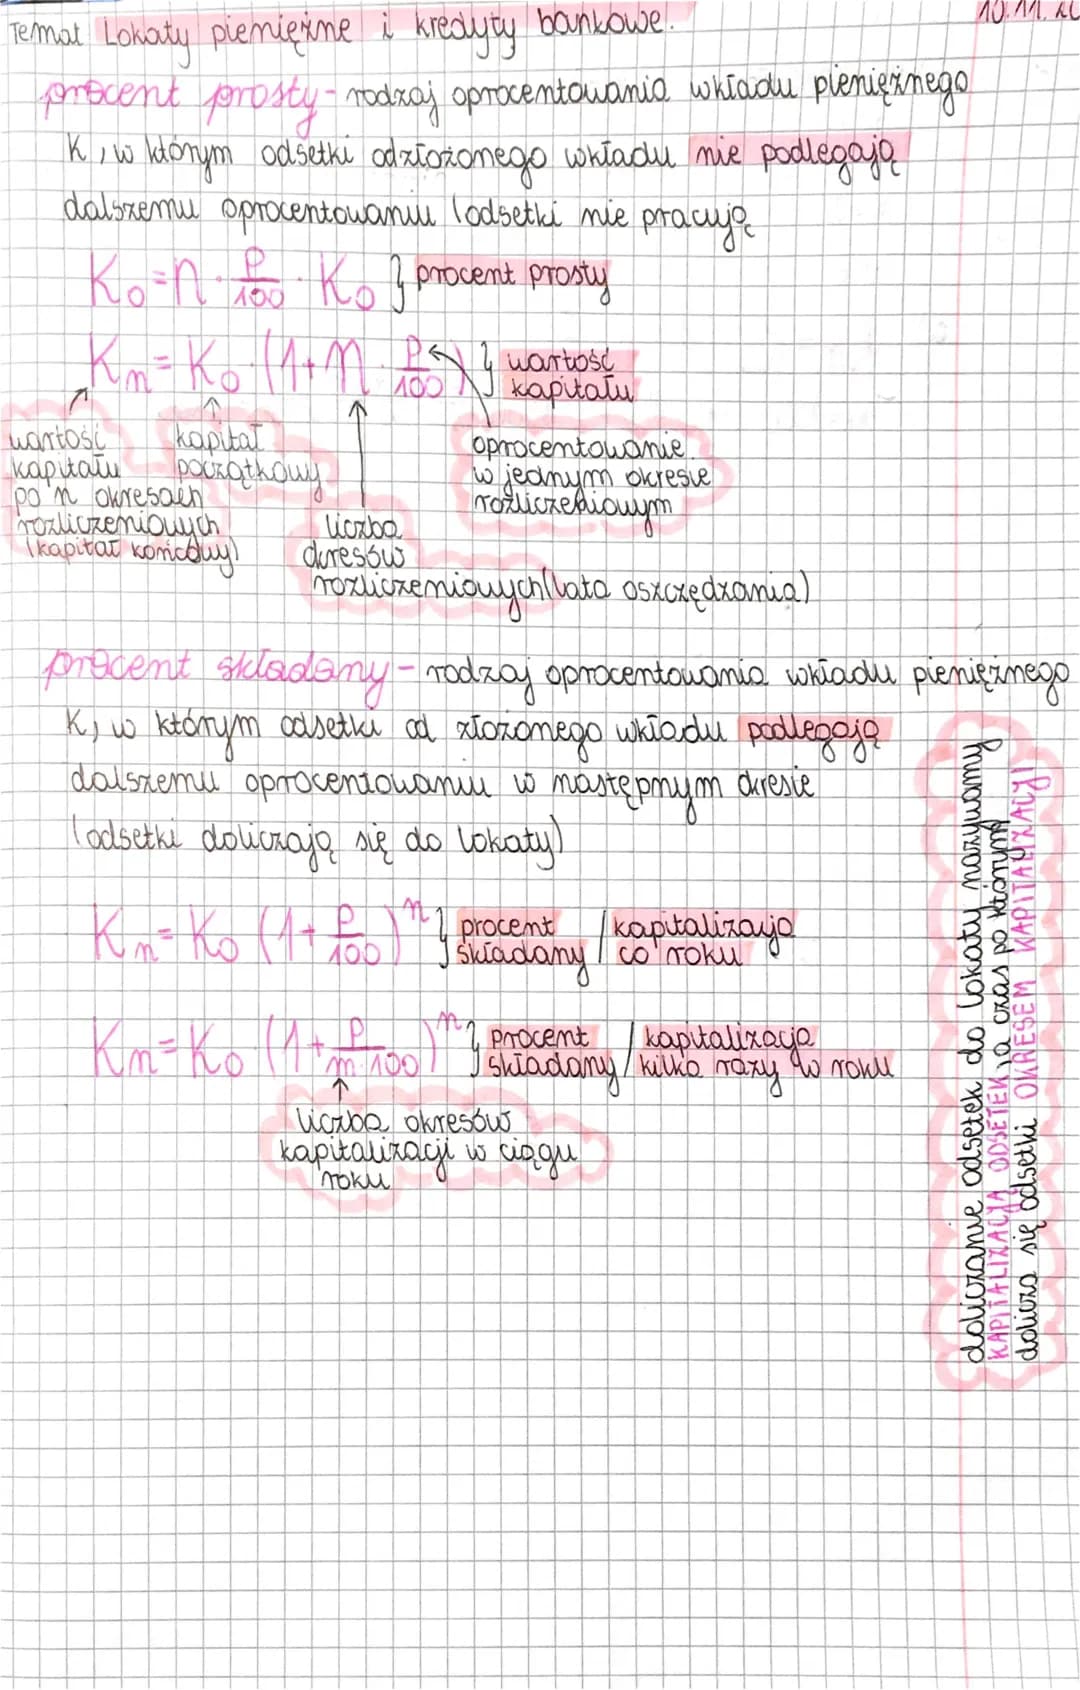 10.11.
Temat Lokaty pieniężne i kredyty bankowe.
procent prosty - rodzaj oprocentowania wkładu pieniężnego
K, w którym odsetki od złożonego wkładu nie podlegają
dalszemu oprocentowaniu (odsetki nie pracują
K₀ = n · p/100 · K₀ } procent prosty
Kn = K₀ · (1 + n · p/100) } wartość kapitału
wartość
kapitału
po n okresach
rozliczeniowych
(kapitał końcowy)
kapitał
początkowy
liczba
okresów
rozliczeniowych (lata oszczędzania)
oprocentowanie
w jednym okresie
rozliczeniowym
procent składany - rodzaj oprocentowania wkładu pieniężnego
K, w którym odsetki od złożonego wkładu podlegają
dalszemu oprocentowaniu w następnym okresie
(odsetki doliczają się do lokaty)
Kn = K₀ (1 + p/100)ⁿ } procent składany / kapitalizacja co roku
Kn = K₀ · (1 + p/m·100)ⁿ } procent składany / kapitalizacja kilka razy w roku
liczba okresów
kapitalizacji w ciągu
roku
doliczanie odsetek do lokaty nazywamy
KAPITALIZACJĄ ODSETEK, a czas po którym
dolicza się odsetki OKRESEM KAPITALIZACJI